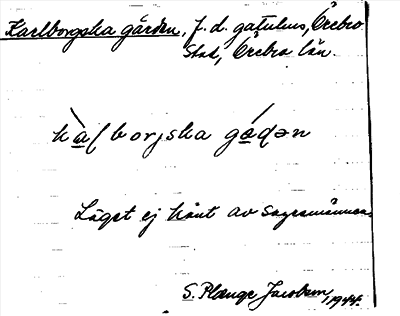 Karlborgska gården, f.d. gatuhus, Örebro
stad, Örebro län.
Läget ej känt av sagesmannen.
S. Plænge Jacobson, 1944.